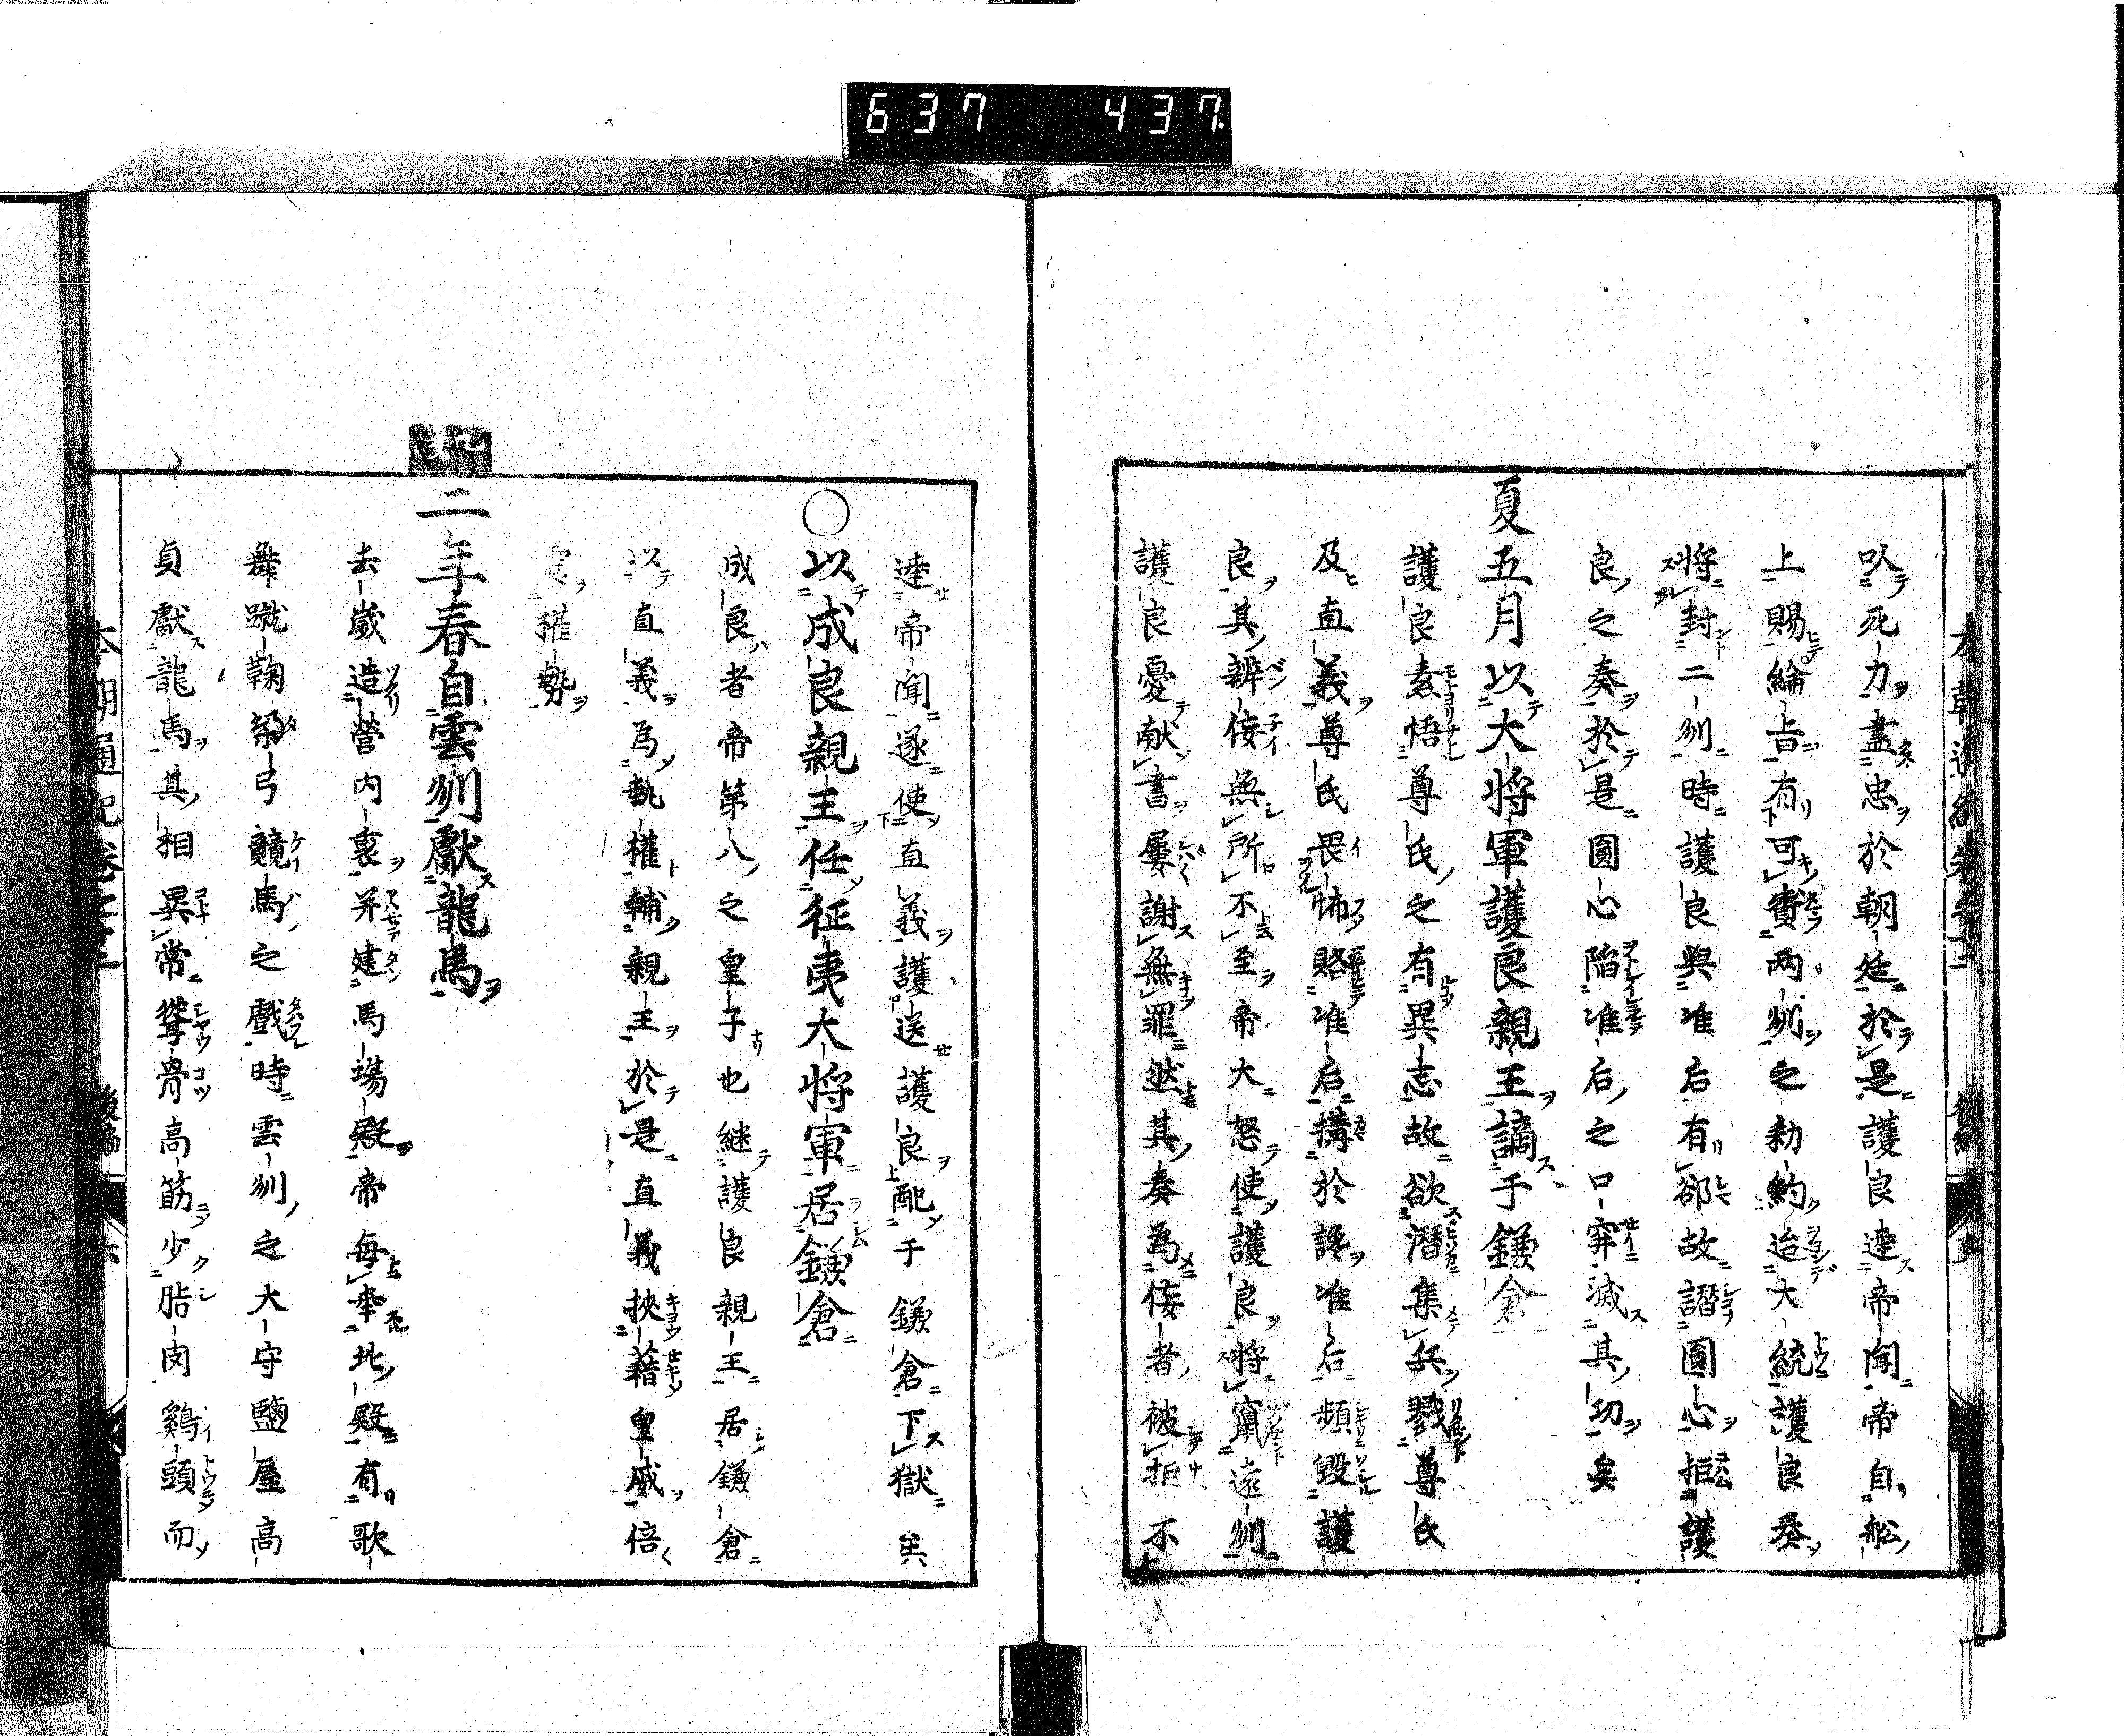 637 437
以死力盡忠於朝廷於是護良達帝聞帝自舩
上賜綸旨有可賚両州之勅約迨大統護良奏
将封二州時護良與准后有郤故譖圓心拒護
良之奏於是圓心陥准后之口穽滅其功矣
夏五月以大将軍護良親王謫于鎌倉
護良素悟尊氏之有異志故欲潜集兵戮尊氏
及直義尊氏畏怖賂准后構於讒准后頻毀護
良其辨侫無所不至帝大怒使護良将竄遠州
護良憂献書屢謝無罪然其奏為侫者被拒不
達帝聞遂使直義護送護良配于鎌倉下獄矣
〇以成良親王任征夷大将軍居鎌倉
成良者帝第八之皇子也継護良親王居鎌倉
以直義為執權輔親王於是直義挾藉皇威倍
權勢
二年春自雲州獻龍馬
去歳造営内裏并建馬場殿帝毎幸北殿有歌
舞蹴鞠弓競馬之戲時雲州之大守鹽屋高
貞獻龍馬其相異常聳骨高筋少脂肉鷄頭而
本朝通紀卷之十二 後編 六